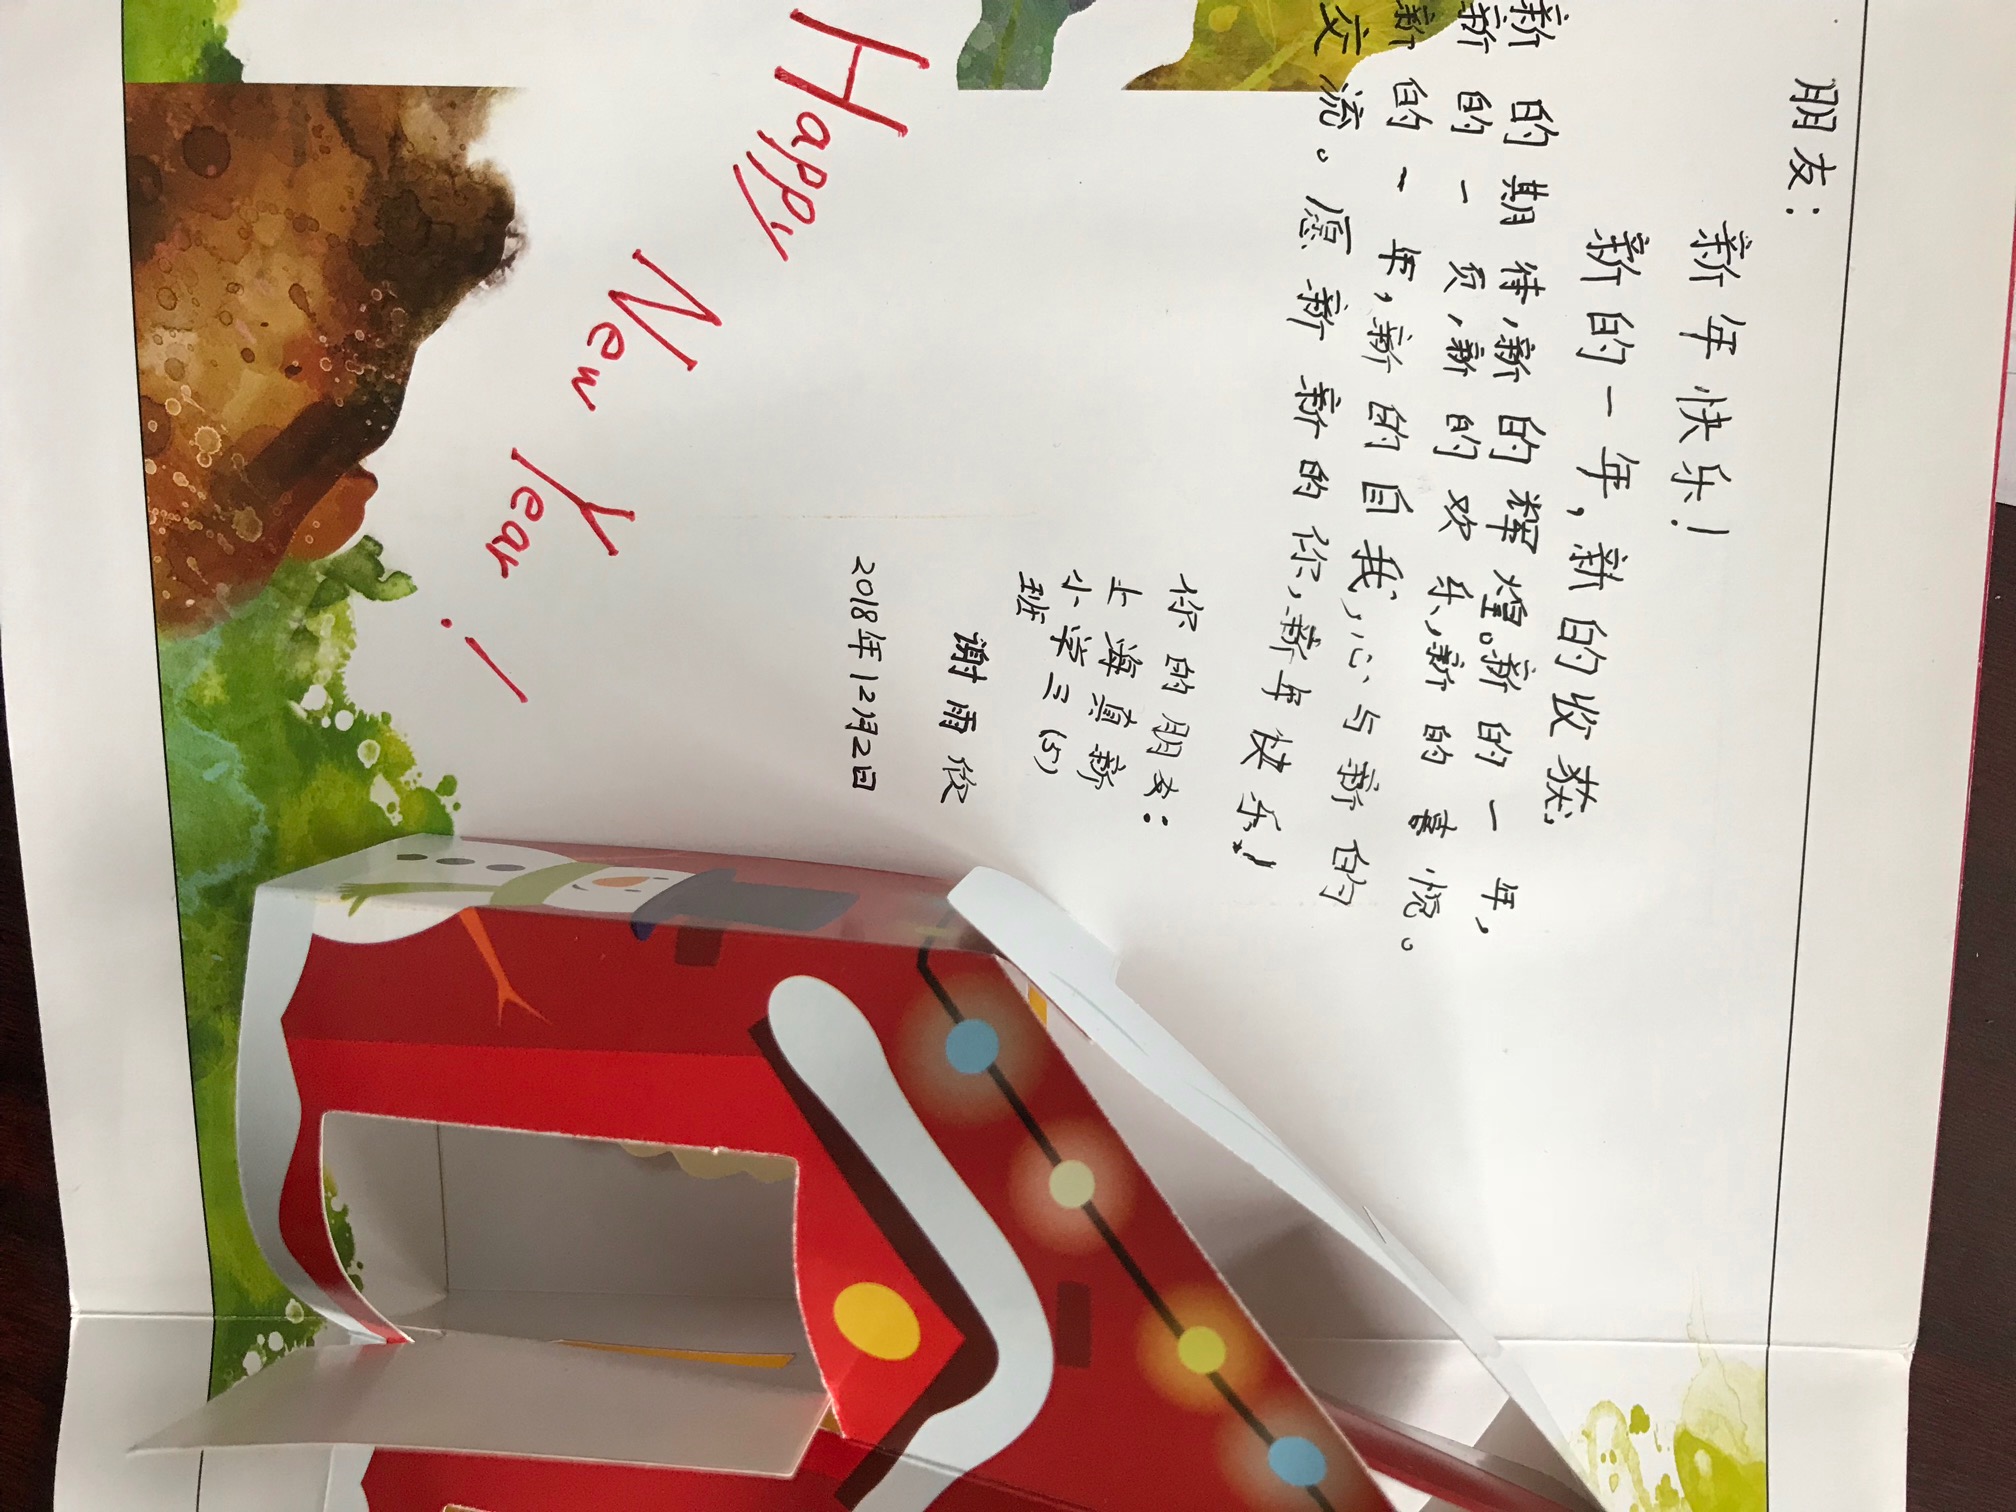 朋友：
新年快乐！
新的一年，新的收获，
新的期待，新的辉煌。新的一年，
新的一页，新的欢乐，新的喜悦。
新的一年，新的自我，心与新的
交流。愿新新的你，新年快乐！
你的朋友：
上海真新
小学三（5）
班
谢雨欣
2018年12月2日
Happy New Year!